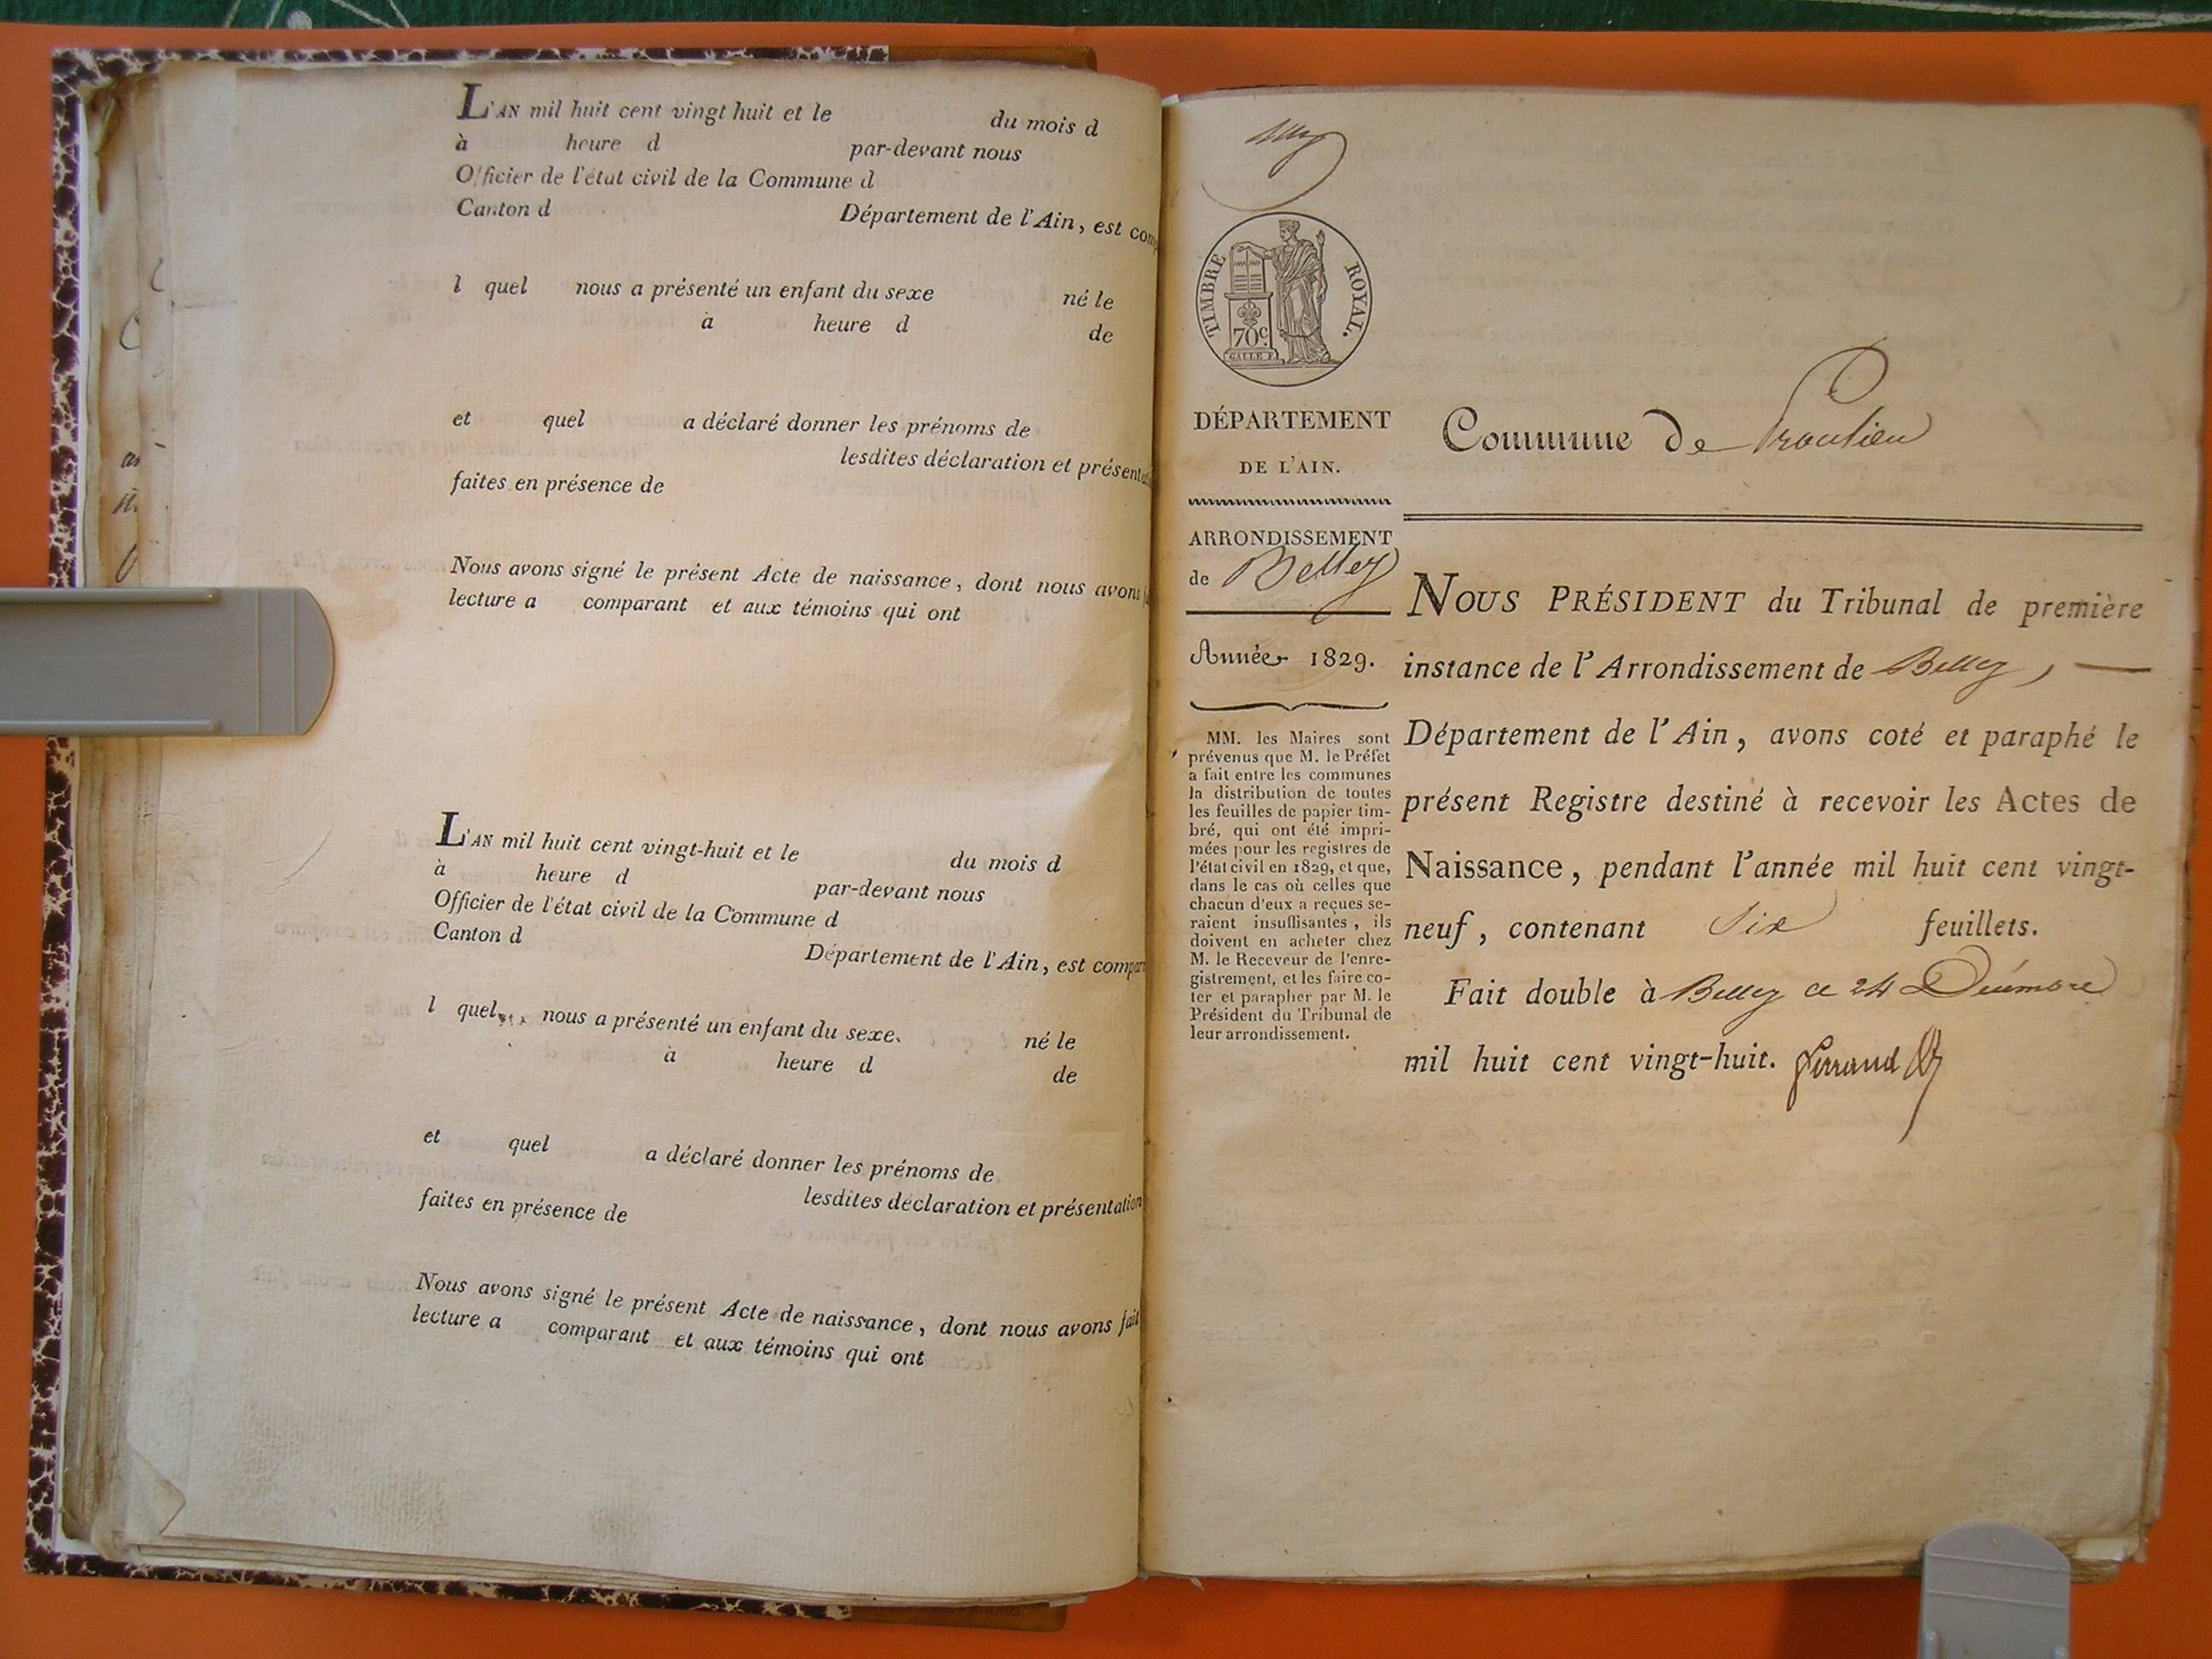 L'AN mil huit cent vingt huit et le du mois d
à heure d par-devant nous
Officier de l'état civil de la Commune d
Canton d Département de l'Ain, est comp
l quel nous a présenté un enfant du sexe né le
à heure d de
et quel a déclaré donner les prénoms de
lesdites déclaration et présentat
faites en présence de
Nous avons signé le présent Acte de naissance, dont nous avons
lecture a comparant et aux témoins qui ont
L'AN mil huit cent vingt-huit et le du mois d
à heure d par-devant nous
Officier de l'état civil de la Commune d
Canton d Département de l'Ain, est compar
l quel nous a présenté un enfant du sexe né le
à heure d de
et quel a déclaré donner les prénoms de
lesdites déclaration et présentation
faites en présence de
Nous avons signé le présent Acte de naissance, dont nous avons fait
lecture a comparant et aux témoins qui ont
TIMBRE ROYAL.
70c.
GALLE F.
DÉPARTEMENT
DE L'AIN.
ARRONDISSEMENT
de Belley
Année 1829.
MM. les Maires sont
prévenus que M. le Préfet
a fait entre les communes
la distribution de toutes
les feuilles de papier tim-
bré, qui ont été impri-
mées pour les registres de
l'état civil en 1829, et que,
dans le cas où celles que
chacun d'eux a reçues se-
raient insuffisantes, ils
doivent en acheter chez
M. le Receveur de l'enre-
gistrement, et les faire co-
ter et parapher par M. le
Président du Tribunal de
leur arrondissement.
Commune de Proulieu
NOUS PRÉSIDENT du Tribunal de première
instance de l'Arrondissement de Belley,
Département de l'Ain, avons coté et paraphé le
présent Registre destiné à recevoir les Actes de
Naissance, pendant l'année mil huit cent vingt-
neuf, contenant Six feuillets.
Fait double à Belley ce 24 Décembre
mil huit cent vingt-huit. Ferrand